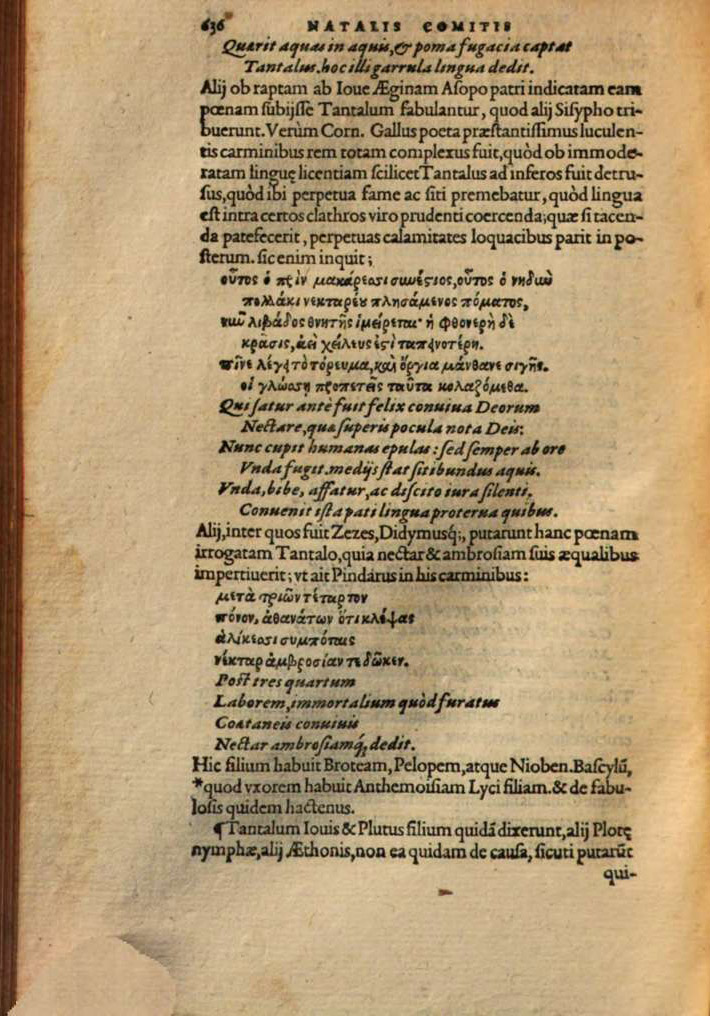 636 NATALIS COMITIS
Quærit aquas in aquis, & poma fugacia captat
Tantalus. hoc illi garrula lingua dedit.
Alij ob raptam ab Ioue Æginam Asopo patri indicatam eam
pœnam subijsse Tantalum fabulantur, quod alij Sisypho tri-
buerunt. Verùm Corn. Gallus poeta præstantissimus luculen-
tis carminibus rem totam complexus fuit, quòd ob immode-
ratam linguę licentiam scilicet Tantalus ad inferos fuit detru-
sus, quòd ibi perpetua fame ac siti premebatur, quòd lingua
est intra certos clathros viro prudenti coercenda; quæ si tacen-
da patefecerit, perpetuas calamitates loquacibus parit in po-
sterum. sic enim inquit;
οὗτος ὁ πρὶν μακάρεσσι συνέστιος, οὗτος ὁ νηδὺν
πολλάκι νεκταρέου πλησάμενος πόματος,
νῦν λιβάδος θνητῆς ἱμείρεται· ἡ φθονερὴ δὲ
κρᾶσις, ἀεὶ χείλευς ἐστὶ ταπεινοτέρη.
πῖνε λέγει τὸ τόρευμα, καὶ ὄργια μάνθανε σιγῆς.
οἱ γλώσσῃ προπετεῖς ταῦτα κολαζόμεθα.
Qui satur antè fuit felix conuiua Deorum
Nectare, quæ superis pocula nota Deis:
Nunc cupit humanas epulas: sed semper ab ore
Vnda fugit. medijs stat sitibundus aquis.
Vnda, bibe, affatur, ac discito iura silenti.
Conuenit ista pati lingua proterua quibus.
Alij, inter quos fuit Zezes, Didymusq́;, putarunt hanc pœnam
irrogatam Tantalo, quia nectar & ambrosiam suis æqualibus
impertiuerit; vt ait Pindarus in his carminibus:
μετὰ τριῶν τέταρτον
πόνον, ἀθανάτων ὅτι κλέψας
ἁλίκεσσι συμπόταις
νέκταρ ἀμβροσίαν τε δῶκεν.
Post tres quartum
Laborem, immortalium quòd furatus
Coætaneis conuiuis
Nectar ambrosiamq́, dedit.
Hic filium habuit Broteam, Pelopem, atque Nioben. Bascylũ,
*quod vxorem habuit Anthemoisiam Lyci filiam. & de fabu-
losis quidem hactenus.
¶Tantalum Iouis & Plutus filium quidã dixerunt, alij Plotę
nymphæ, alij Æthonis, non ea quidam de causa, sicuti putarũt
qui-